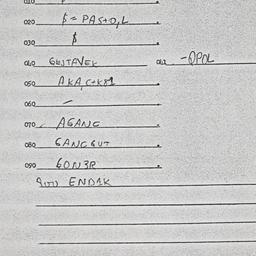 010
020 $ = PAS+O,L
030 $
040 GUSTAVEK 042 -OPOL
050 AKA,C+K81
060 -
070 AGANG
080 GANGGUT
090 GON3R
ENDAK